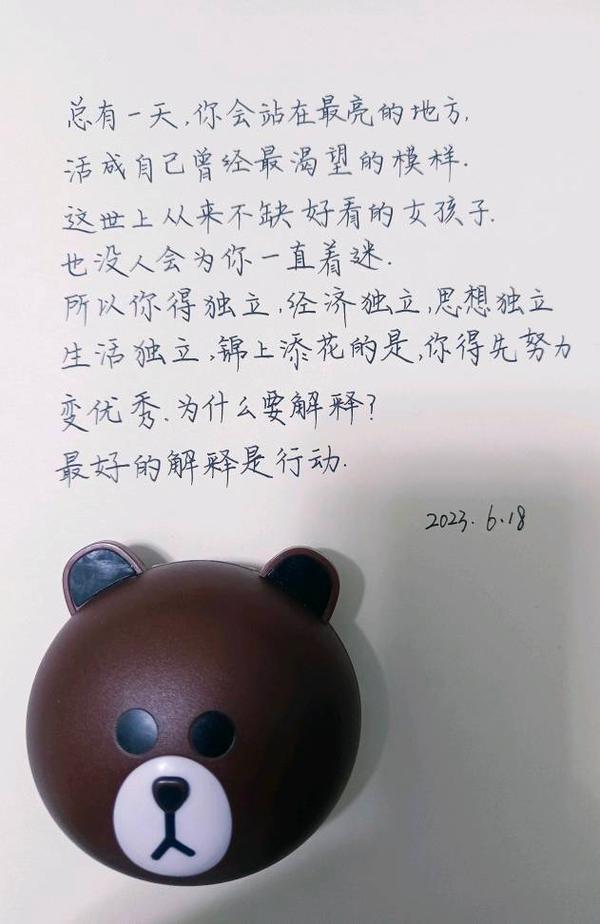 总有一天,你会站在最亮的地方,
活成自己曾经最渴望的模样.
这世上从来不缺好看的女孩子.
也没人会为你一直着迷.
所以你得独立,经济独立,思想独立
生活独立,锦上添花的是,你得先努力
变优秀.为什么要解释?
最好的解释是行动.
2023.6.18